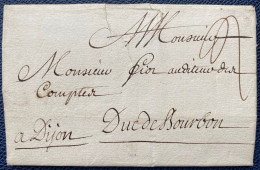 A Monsieur
Monsieur auditeur des
Comptes
a Dijon Duc de Bourbon